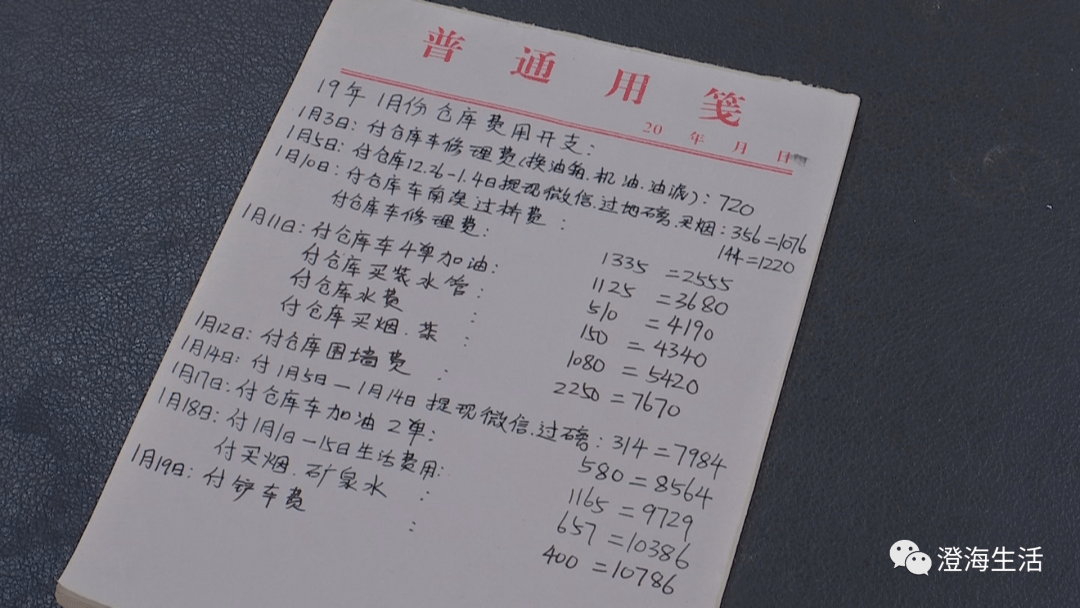 普通用笺
20 年 月 日
19年1月份仓库费用开支:
1月3日: 付仓库车修理费(换油箱.机油.油泵): 720
1月5日: 付仓库12.26-1.4日提现微信.过地磅.买烟: 356=1076
1月10日: 付仓库车南澳过桥费: 144=1220
付仓库车修理费: 1335=2555
1月11日: 付仓库车4单加油: 1125=3680
付仓库买装水管: 510=4190
付仓库水费: 150=4340
付仓库买烟.茶: 1080=5420
1月12日: 付仓库围墙费: 2250=7670
1月14日: 付1月5日-1月14日提现微信.过磅: 314=7984
1月17日: 付仓库车加油2单: 580=8564
1月18日: 付1月1日-15日生活费用: 1165=9729
付买烟.矿泉水: 657=10386
1月19日: 付铲车费: 400=10786
澄海生活